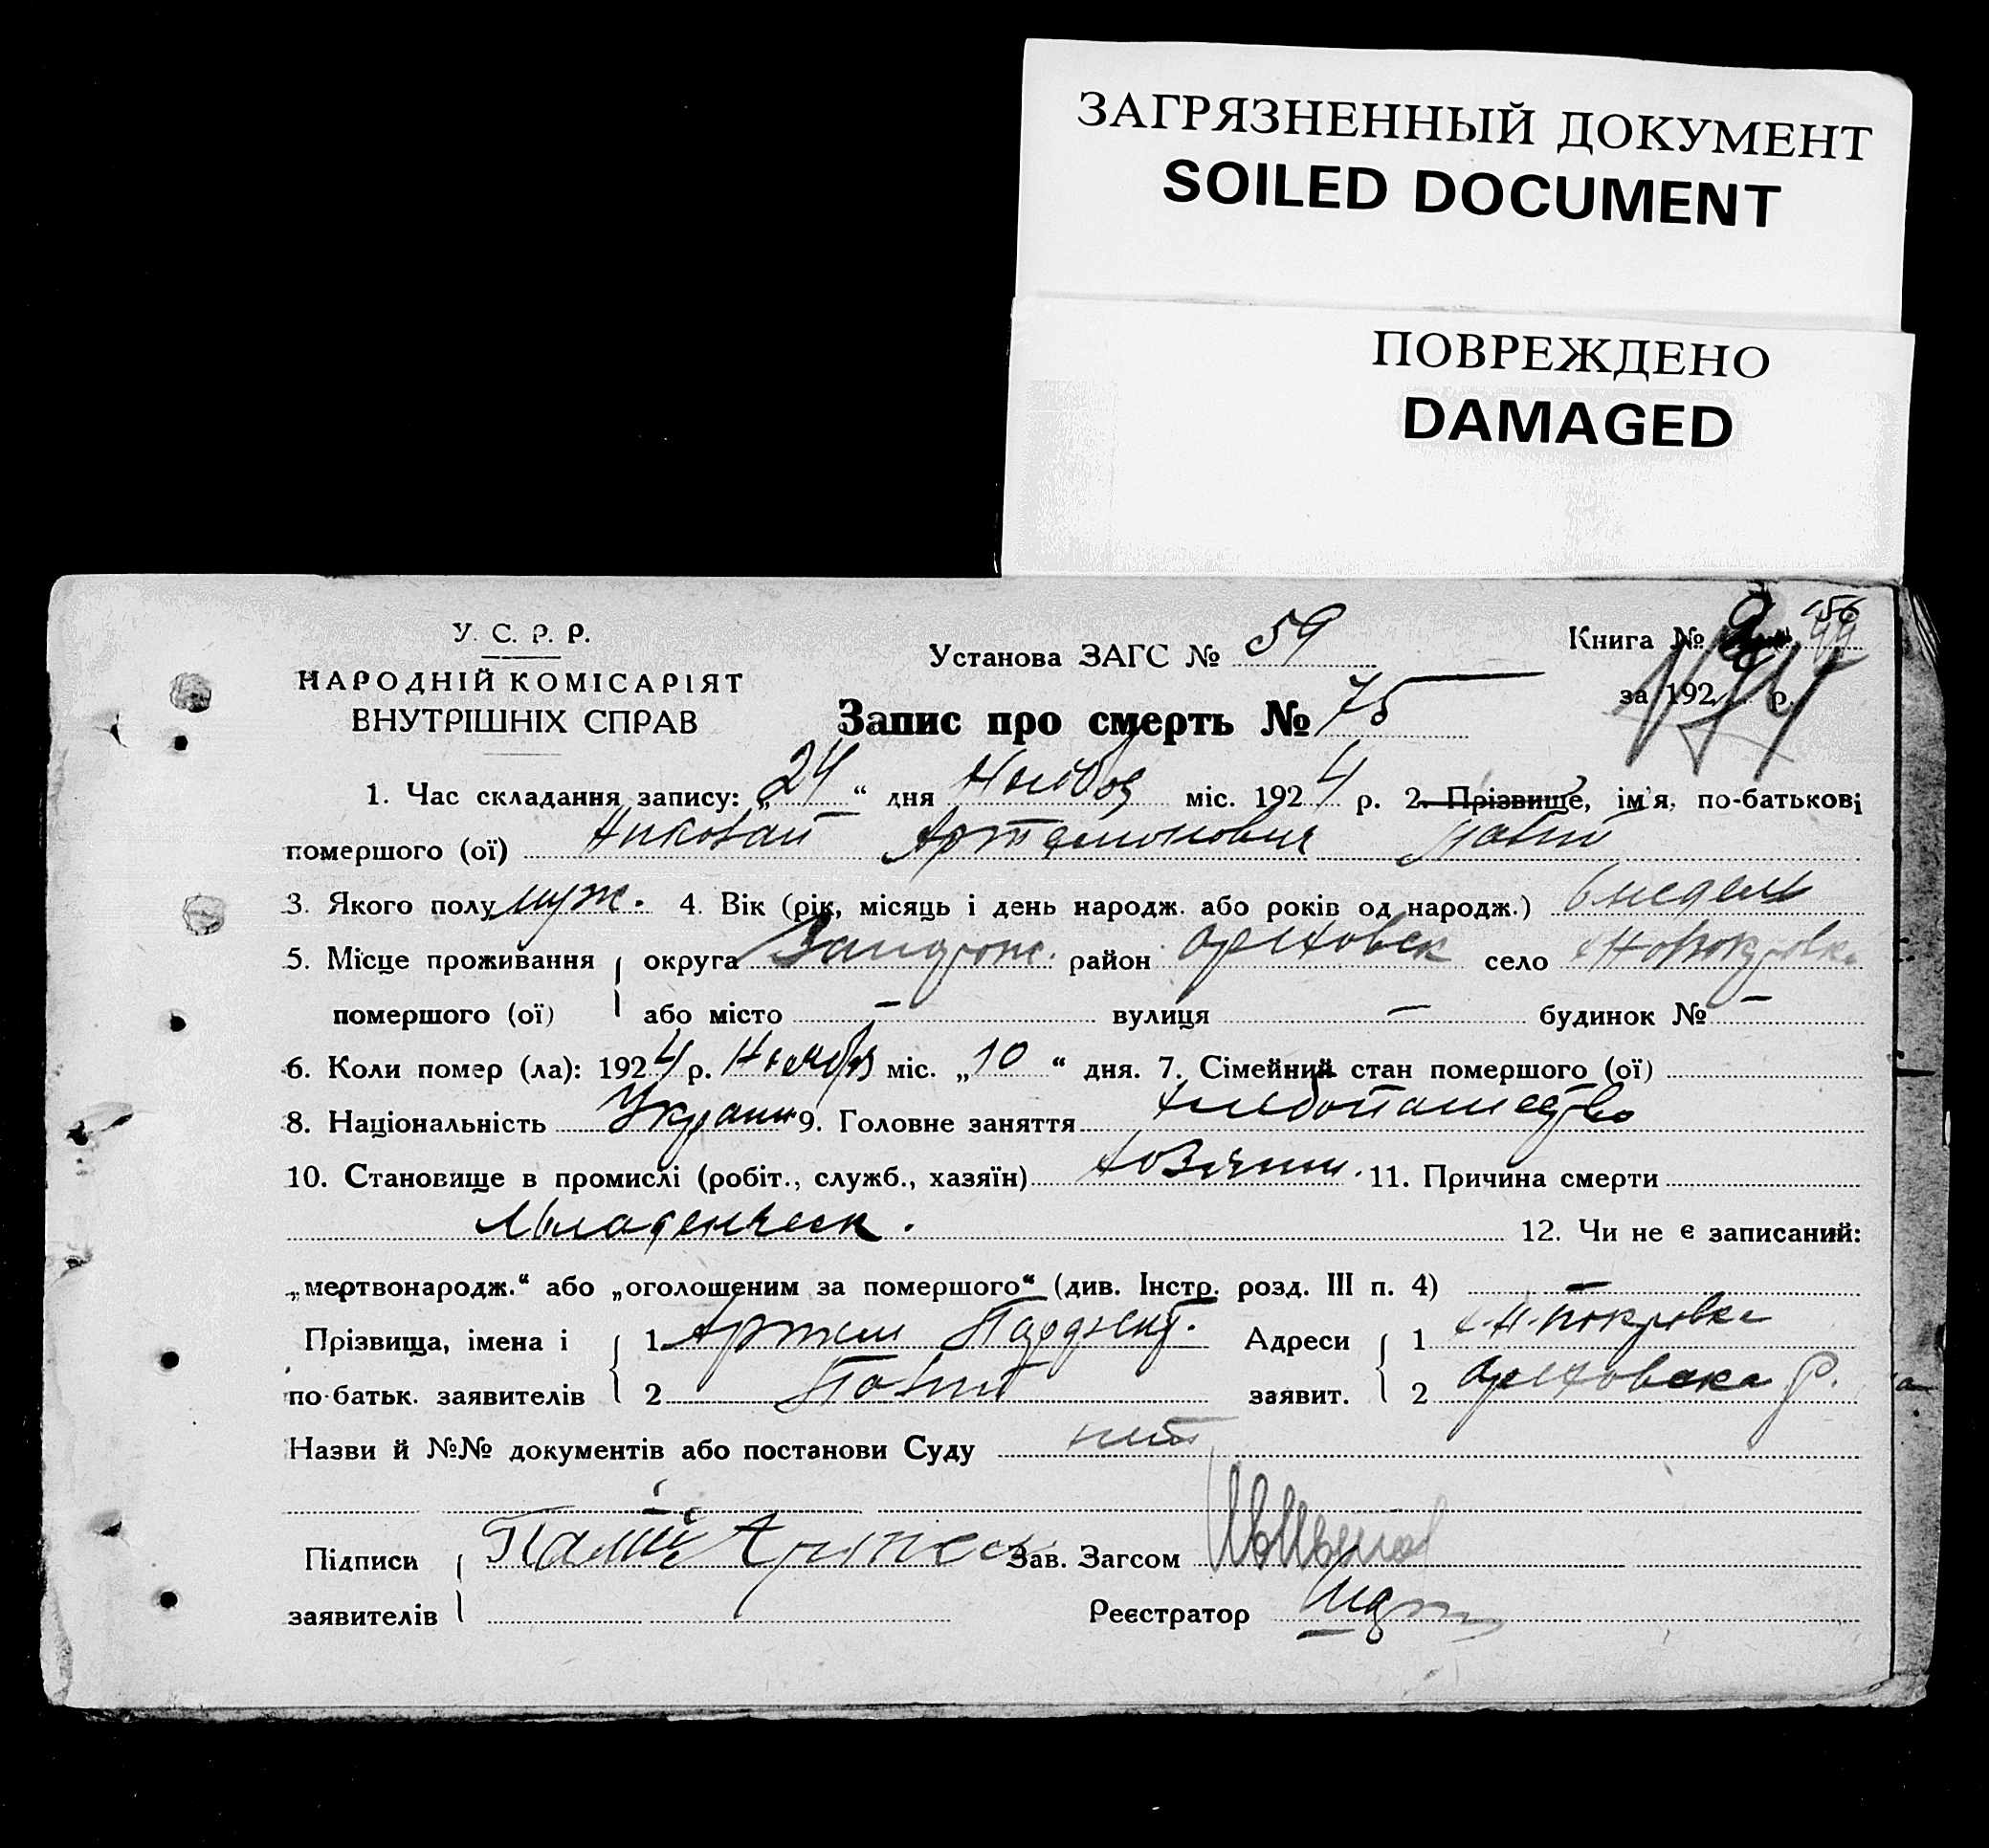 ЗАГРЯЗНЕННЫЙ ДОКУМЕНТ
SOILED DOCUMENT
ПОВРЕЖДЕНО
DAMAGED
У. С. Р. Р.
НАРОДНІЙ КОМІСАРІЯТ
ВНУТРІШНІХ СПРАВ
Установа ЗАГС № 59
Книга №
за 192 р.
Запис про смерть № 75
1. Час складання запису: „24“ дня Ноября міс. 1924 р. 2. Прізвище, ім'я, по-батькові
помершого (ої) Николай Артемонович
3. Якого полу муж. 4. Вік (рік, місяць і день народж. або років од народж.) 6 недель
5. Місце проживання округа Запорож. район Ореховск село Н Покровка
помершого (ої) або місто — вулиця — будинок № —
6. Коли помер (ла): 1924 р. Ноября міс. „10“ дня. 7. Сімейний стан помершого (ої)
8. Національність Украин 9. Головне заняття хлебопашество
10. Становище в промислі (робіт., служб., хазяїн) хозяин. 11. Причина смерти
Младенческ. 12. Чи не є записаний:
„мертвонародж.“ або „оголошеним за помершого“ (див. Інстр. розд. III п. 4) —
Прізвища, імена і 1 Артем Адреси 1 с. Н. Покровка
по батьк. заявителів 2 заявит. 2 Ореховска Р.
Назви й №№ документів або постанови Суду нет
Підписи Артем Зав. Загсом
заявителів Реєстратор